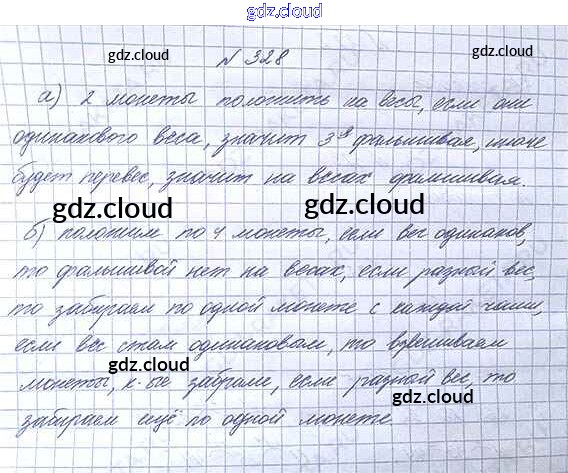 gdz.cloud
gdz.cloud gdz.cloud
N 328
а) 2 монеты положить на весы, если они
одинакового веса, значит 3я фальшивая, иначе
будет перевес, значит на весах фальшивая.
gdz.cloud gdz.cloud
б) положим по 4 монеты, если вес одинаков,
то фальшивой нет на весах, если разной вес,
то забираем по одной монете с каждой чаши,
если вес стал одинаковым, то взвешиваем
gdz.cloud
монеты, к-ые забрали, если разной вес, то
gdz.cloud
забираем ещё по одной монете.